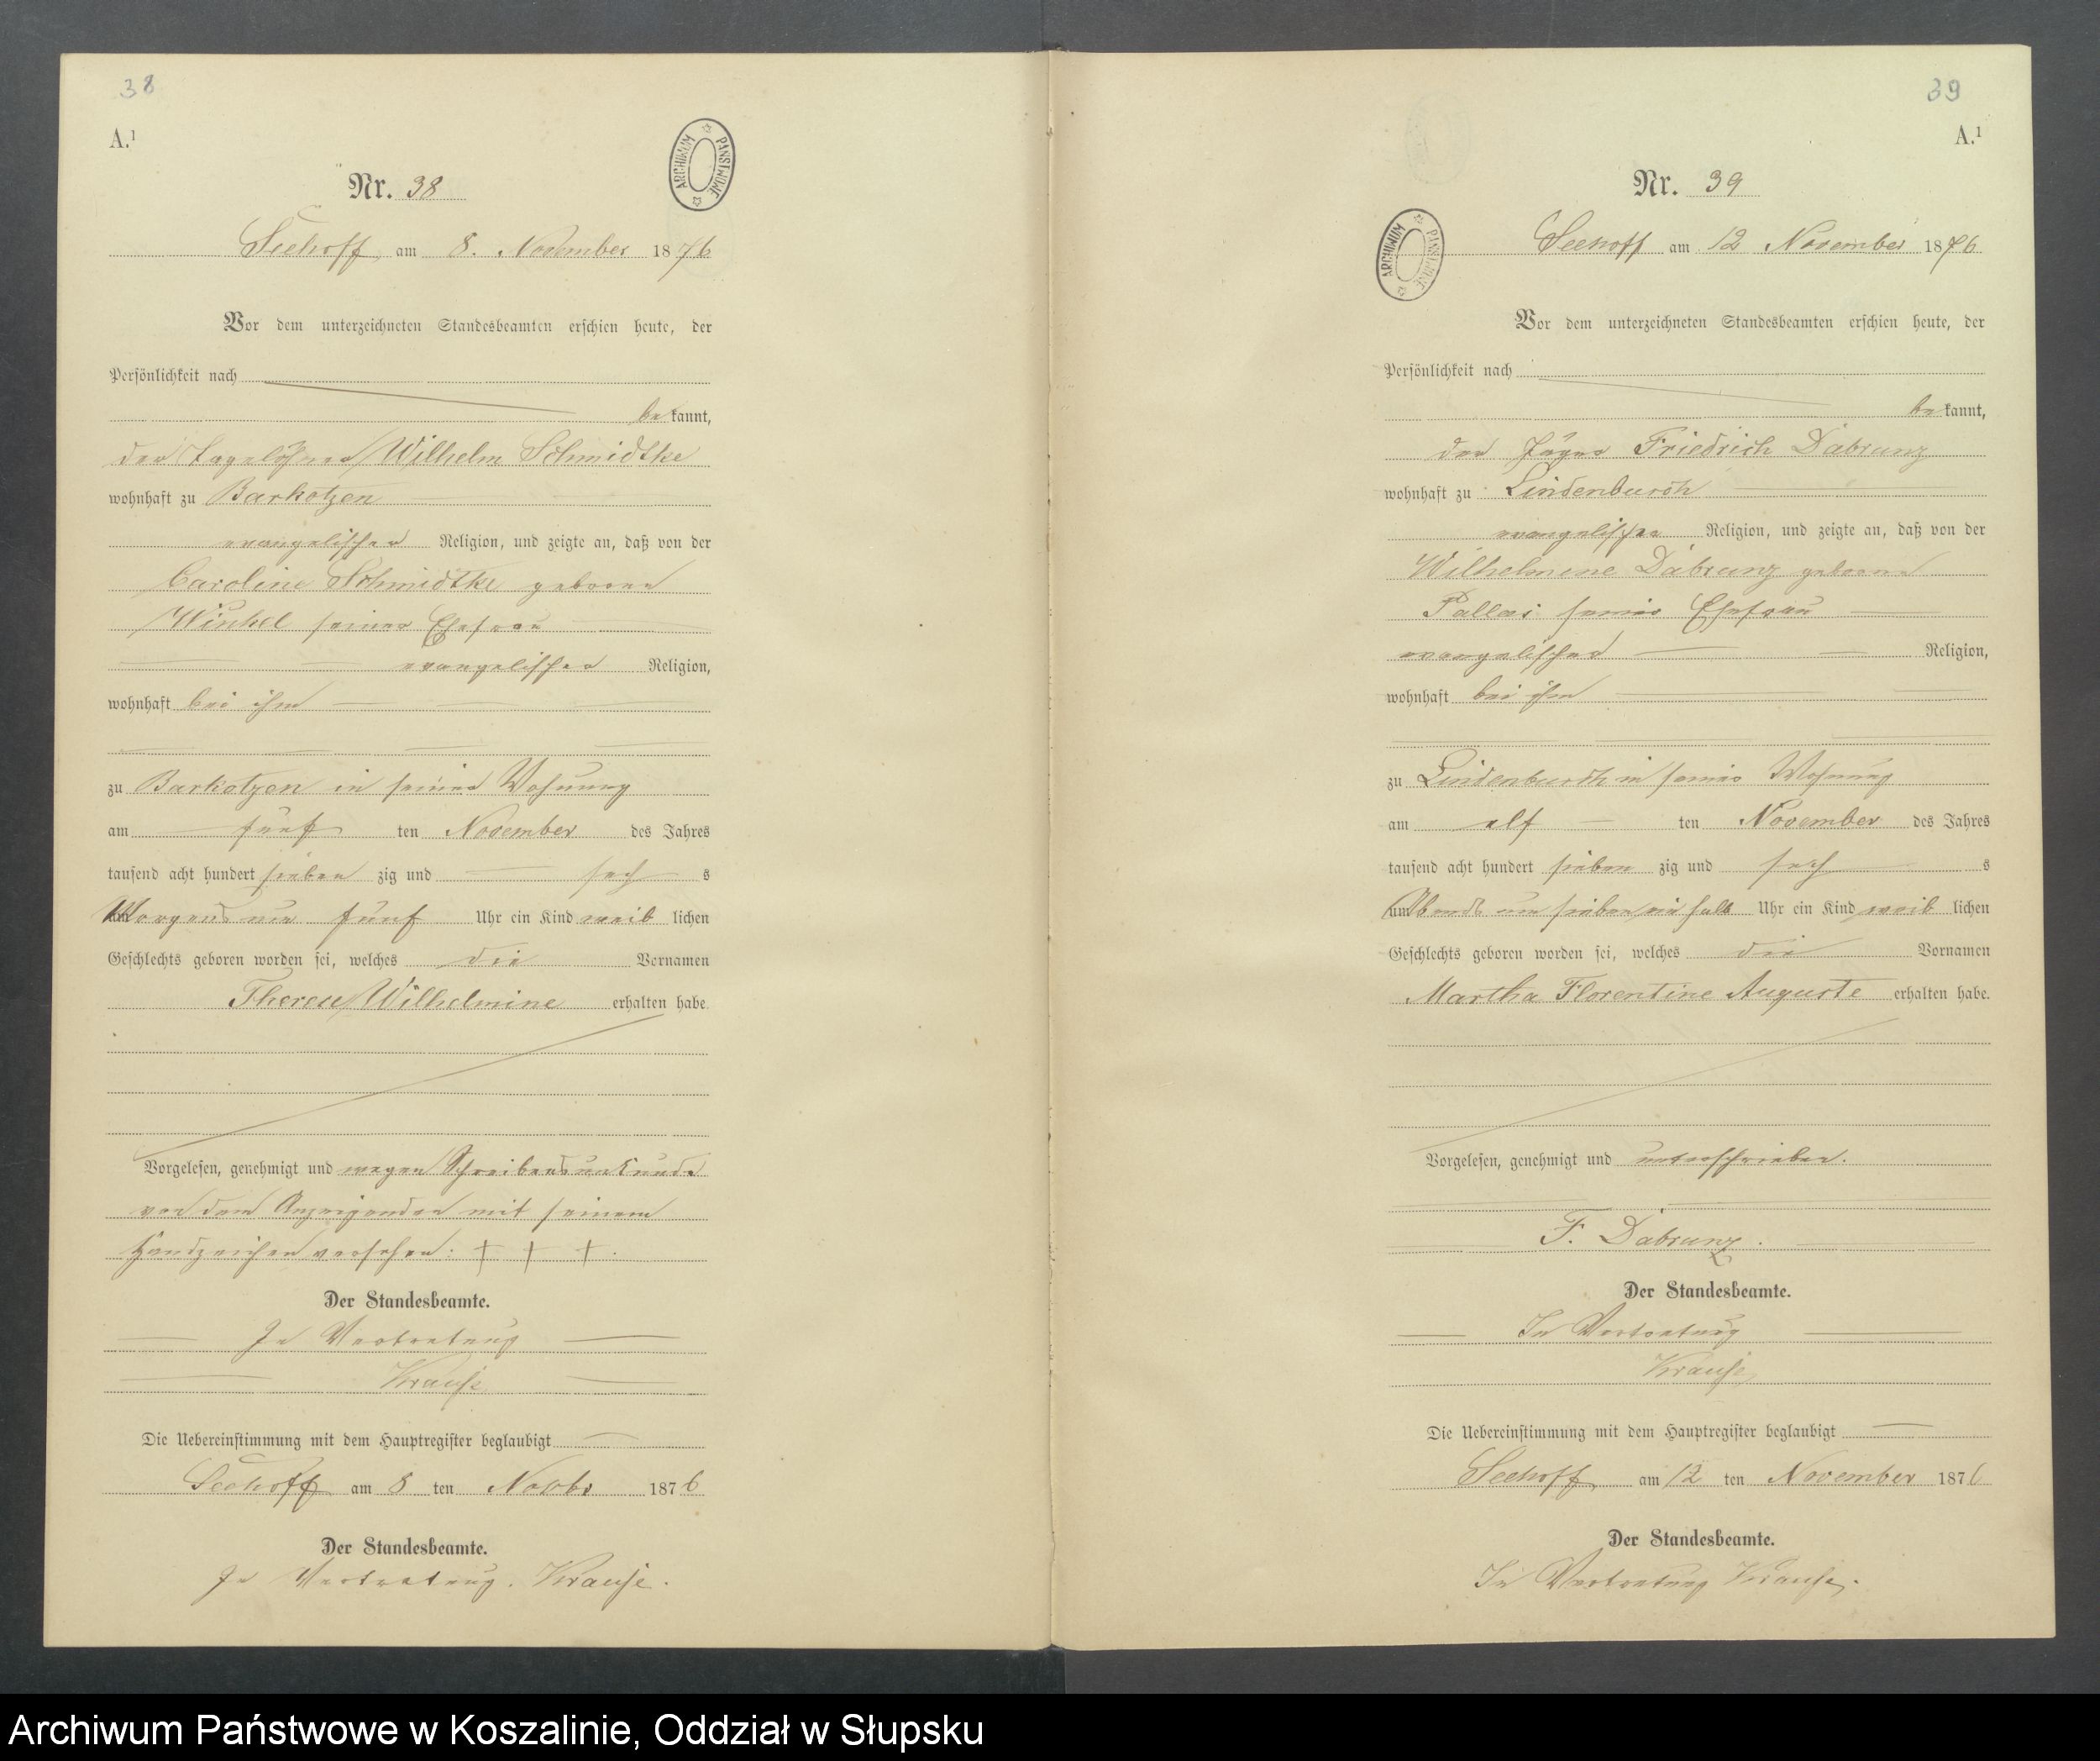 38
A.¹
ARCHIWUM PAŃSTWOWE
Nr. 38
Seehoff, am 8. November 1876
Vor dem unterzeichneten Standesbeamten erschien heute, der
Persönlichkeit nach
bekannt,
der Tagelöhner Wilhelm Schmidtke
wohnhaft zu Barkotzen
evangelischer Religion, und zeigte an, daß von der
Caroline Schmidtke geborene
Winkel seiner Ehefrau
evangelischer Religion,
wohnhaft bei ihm
zu Barkotzen in seiner Wohnung
am fünf ten November des Jahres
tausend acht hundert sieben zig und sech s
Morgens um fünf Uhr ein Kind weib lichen
Geschlechts geboren worden sei, welches die Vornamen
Therese Wilhelmine erhalten habe.
Vorgelesen, genehmigt und wegen Schreibensunkunde
von dem Anzeigenden mit seinem
Handzeichen versehen: + + +.
Der Standesbeamte.
In Vertretung
Krause
Die Uebereinstimmung mit dem Hauptregister beglaubigt
Seehoff am 8 ten Novbr 1876
Der Standesbeamte.
In Vertretung. Krause.
39
A.¹
ARCHIWUM PAŃSTWOWE
Nr. 39
Seehoff am 12 November 1876
Vor dem unterzeichneten Standesbeamten erschien heute, der
Persönlichkeit nach
bekannt,
der Jäger Friedrich Dabrunz
wohnhaft zu Lindenbusch
evangelischer Religion, und zeigte an, daß von der
Wilhelmine Dabrunz geborene
Pallas seiner Ehefrau
evangelischer Religion,
wohnhaft bei ihm
zu Lindenbusch in seiner Wohnung
am elf ten November des Jahres
tausend acht hundert sieben zig und sech s
Abends um sieben ein halb Uhr ein Kind weib lichen
Geschlechts geboren worden sei, welches die Vornamen
Martha Florentine Auguste erhalten habe.
Vorgelesen, genehmigt und unterschrieben.
F. Dabrunz.
Der Standesbeamte.
In Vertretung
Krause
Die Uebereinstimmung mit dem Hauptregister beglaubigt
Seehoff, am 12 ten November 1876
Der Standesbeamte.
In Vertretung Krause.
Archiwum Państwowe w Koszalinie, Oddział w Słupsku